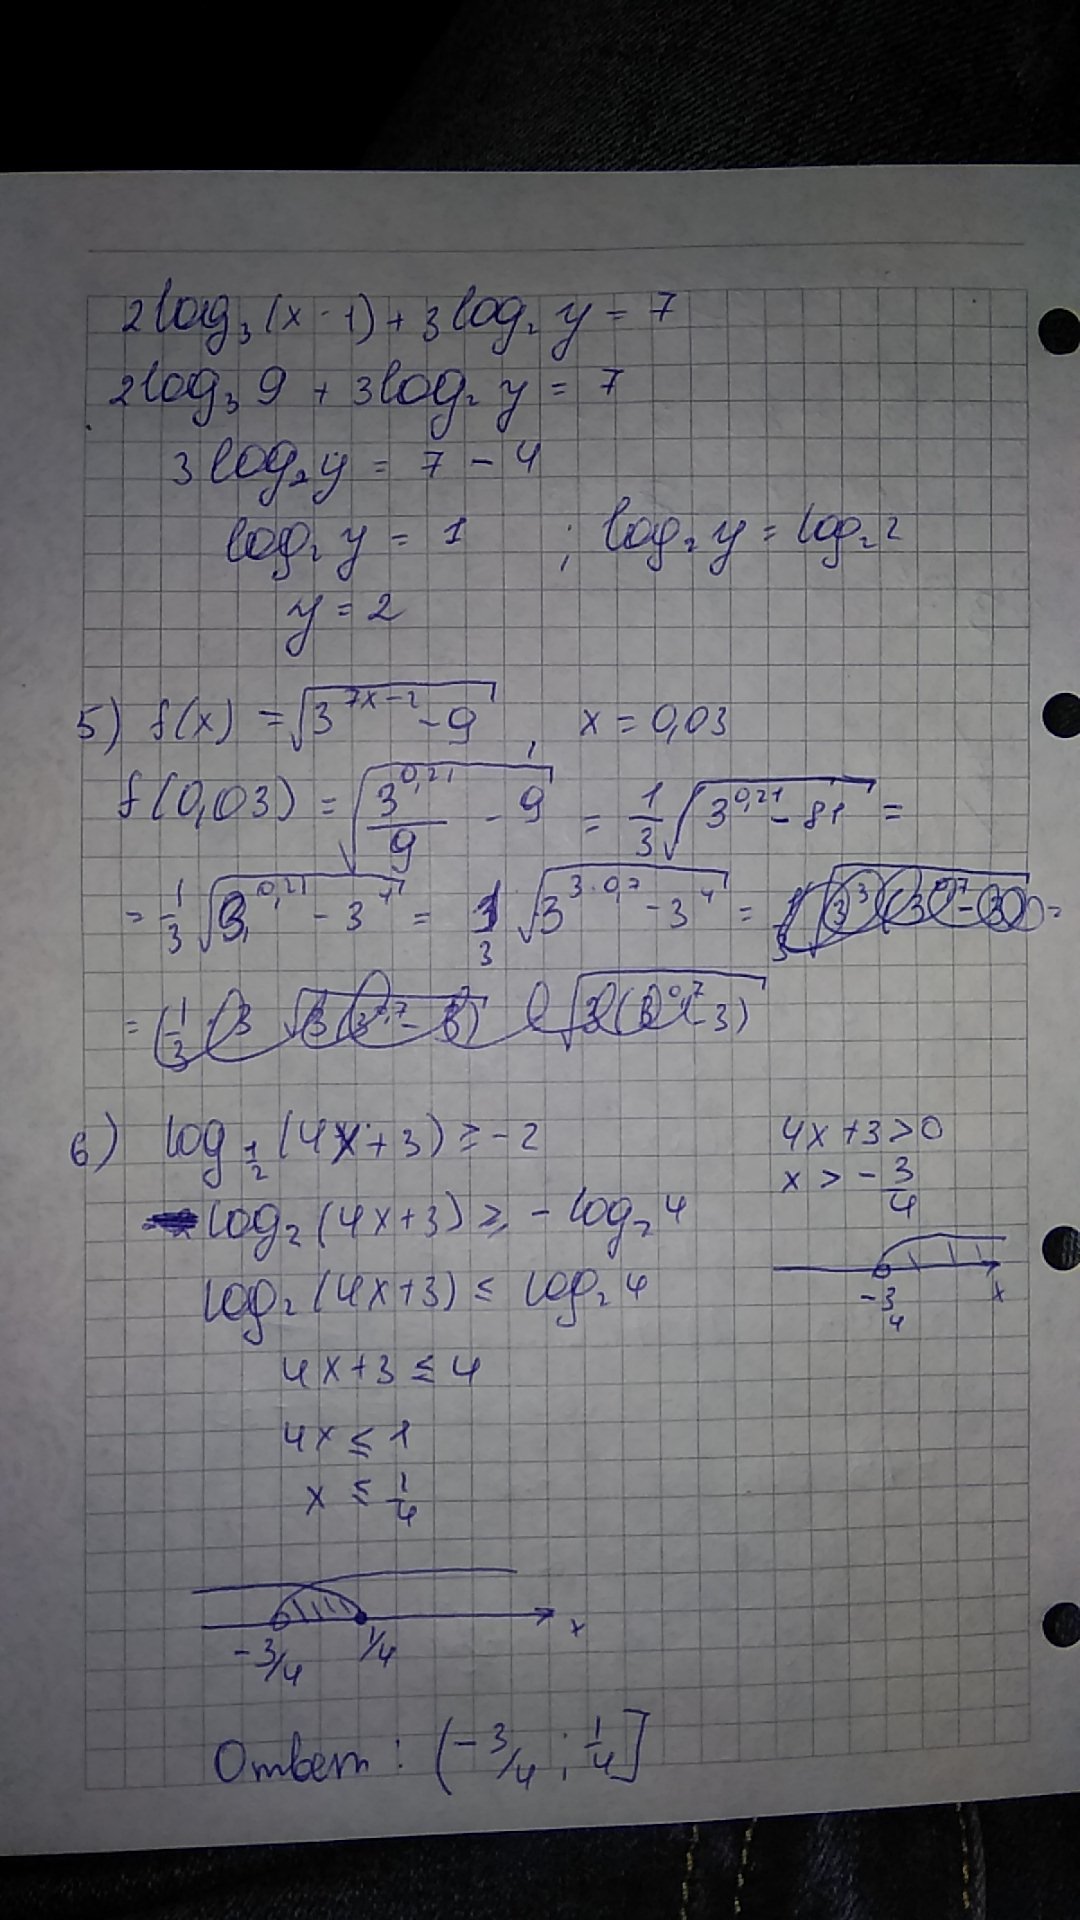 2log₃(x-1)+3log₂y=7
2log₃9+3log₂y=7
3log₂y=7-4
log₂y=1 ; log₂y=log₂2
y=2
5) f(x)=√(3^(7x-2)-9), x=0,03
f(0,03)=√(3^(0,21)/9-9)=1/3√(3^(0,21)-81)=
=1/3√(3^(0,21)-3⁴)=1/3√(3^(3·0,7)-3⁴)=
6) log_(1/2)(4x+3)≥-2
4x+3>0
x>-3/4
-3/4 x
log₂(4x+3)≥-log₂4
log₂(4x+3)≤log₂4
4x+3≤4
4x≤1
x≤1/4
-3/4 1/4 x
Ответ: (-3/4; 1/4]